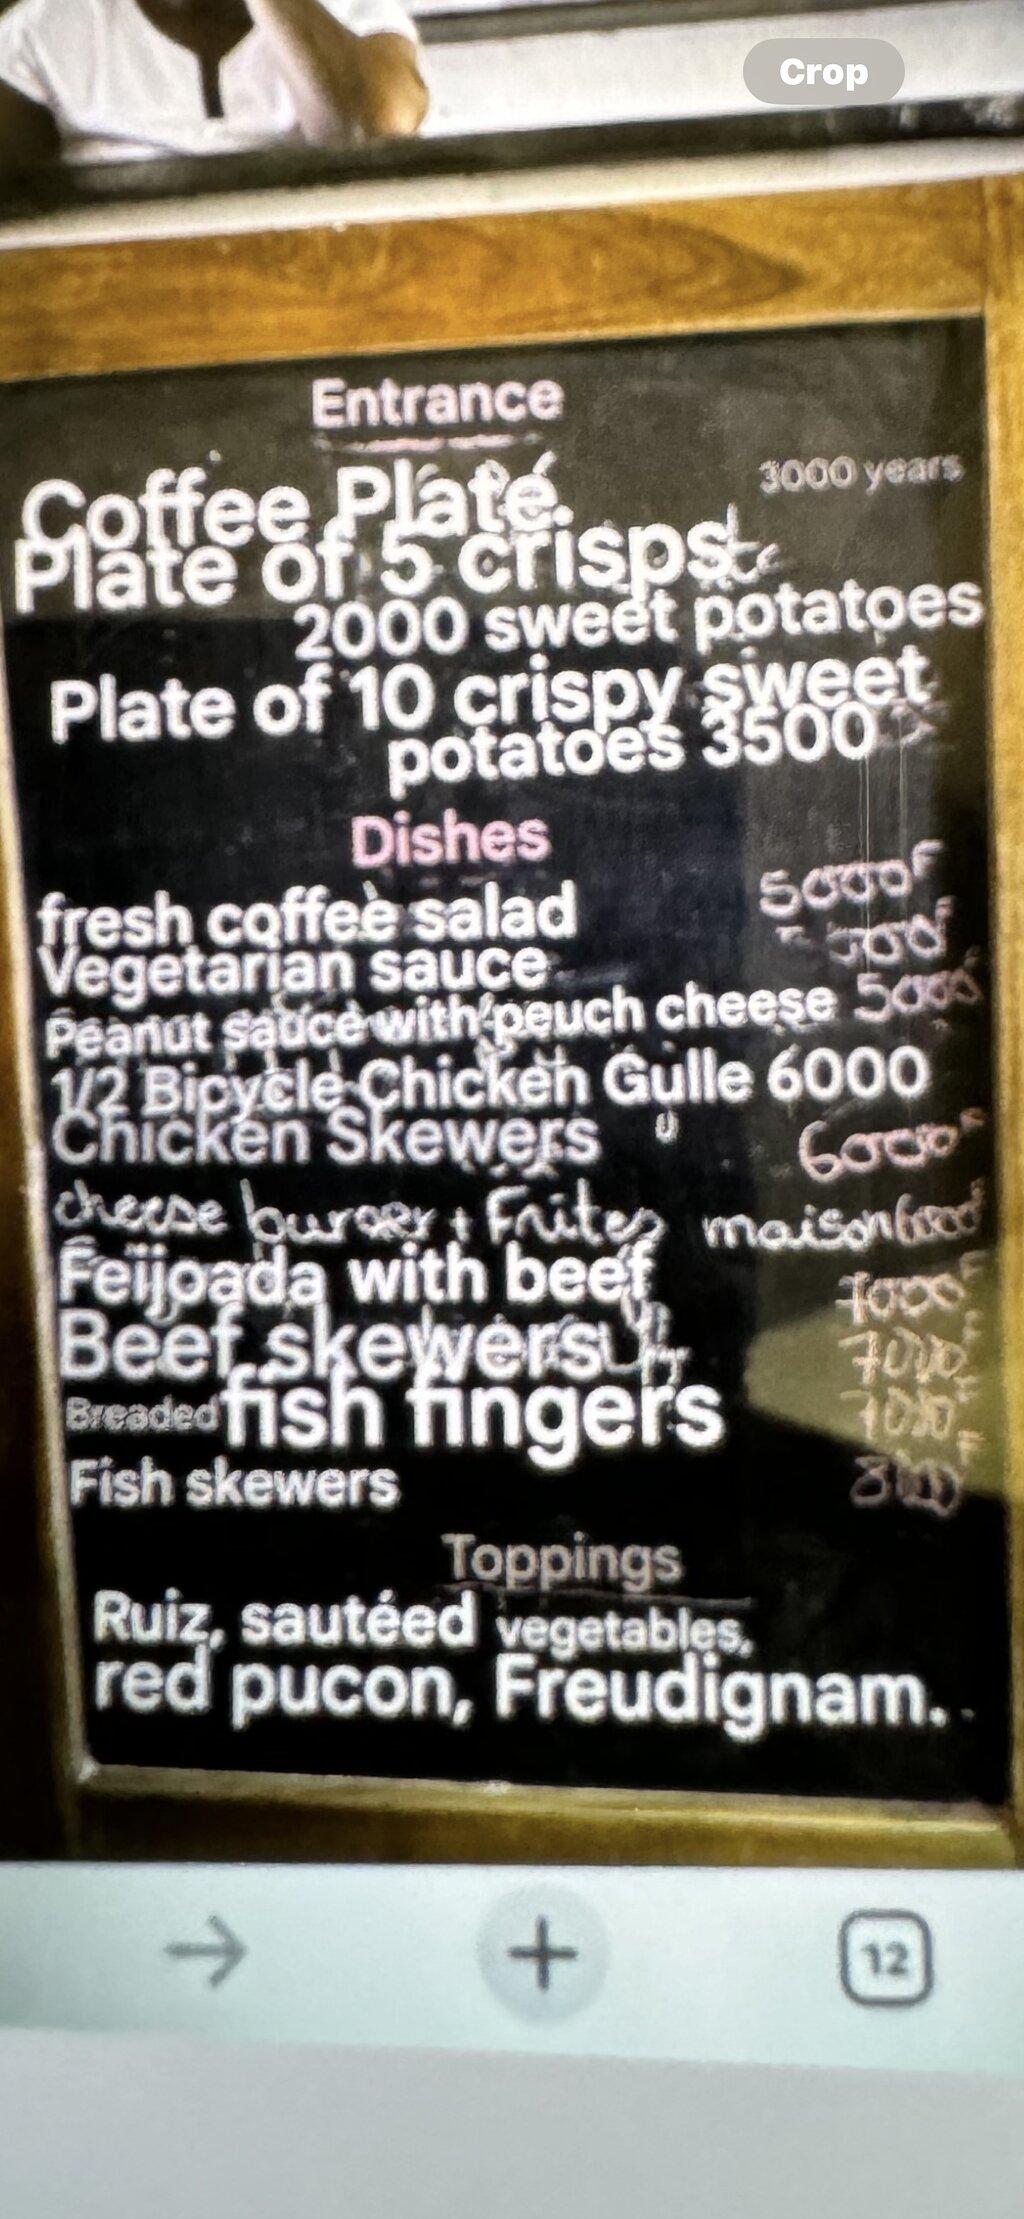 Crop
Entrance
Coffee Plate. 3000 years
Plate of 5 crisps
2000 sweet potatoes
Plate of 10 crispy sweet
potatoes 3500
Dishes
fresh coffee salad 5000F
Vegetarian sauce
Peanut sauce with peuch cheese 5000
1/2 Bicycle Chicken Gulle 6000
Chicken Skewers 6000F
cheese burger + Frites maison 6000F
Feijoada with beef 7000F
Beef skewers 7000F
Breaded fish fingers 7000F
Fish skewers
Toppings
Ruiz, sautéed vegetables,
red pucon, Freudignam.
12